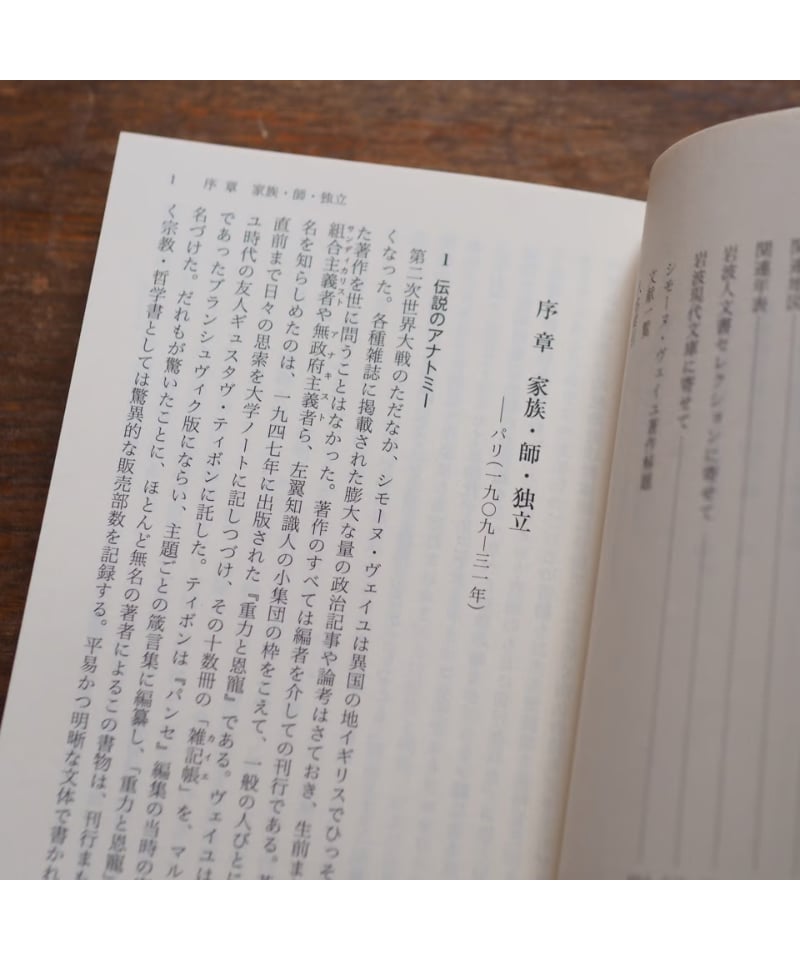 関連地図
関連年表
岩波人文書セレクションに寄せて
岩波現代文庫に寄せて
シモーヌ・ヴェイユ著作解題
文献一覧
序章 家族・師・独立
——パリ(一九〇九—三一年)
1 伝説のアナトミー
第二次世界大戦のただなか、シモーヌ・ヴェイユは異国の地イギリスでひっそ
くなった。各種雑誌に掲載された膨大な量の政治記事や論考はさておき、生前ま
た著作を世に問うことはなかった。著作のすべては編者を介しての刊行である。
サンディカリスト アナキスト
組合主義者や無政府主義者ら、左翼知識人の小集団の枠をこえて、一般の人びとに
名を知らしめたのは、一九四七年に出版された『重力と恩寵』である。ヴェイユは
カイエ
直前まで日々の思索を大学ノートに記しつづけ、その十数冊の「雑記帳」を、マル
ユ時代の友人ギュスタヴ・ティボンに託した。ティボンは『パンセ』編集の当時の
であったブランシュヴィク版にならい、主題ごとの箴言集に編纂し、「重力と恩寵」
名づけた。だれもが驚いたことに、ほとんど無名の著者によるこの書物は、刊行まも
く宗教・哲学書としては驚異的な販売部数を記録する。平易かつ明晰な文体で書かれ
1 序章 家族・師・独立